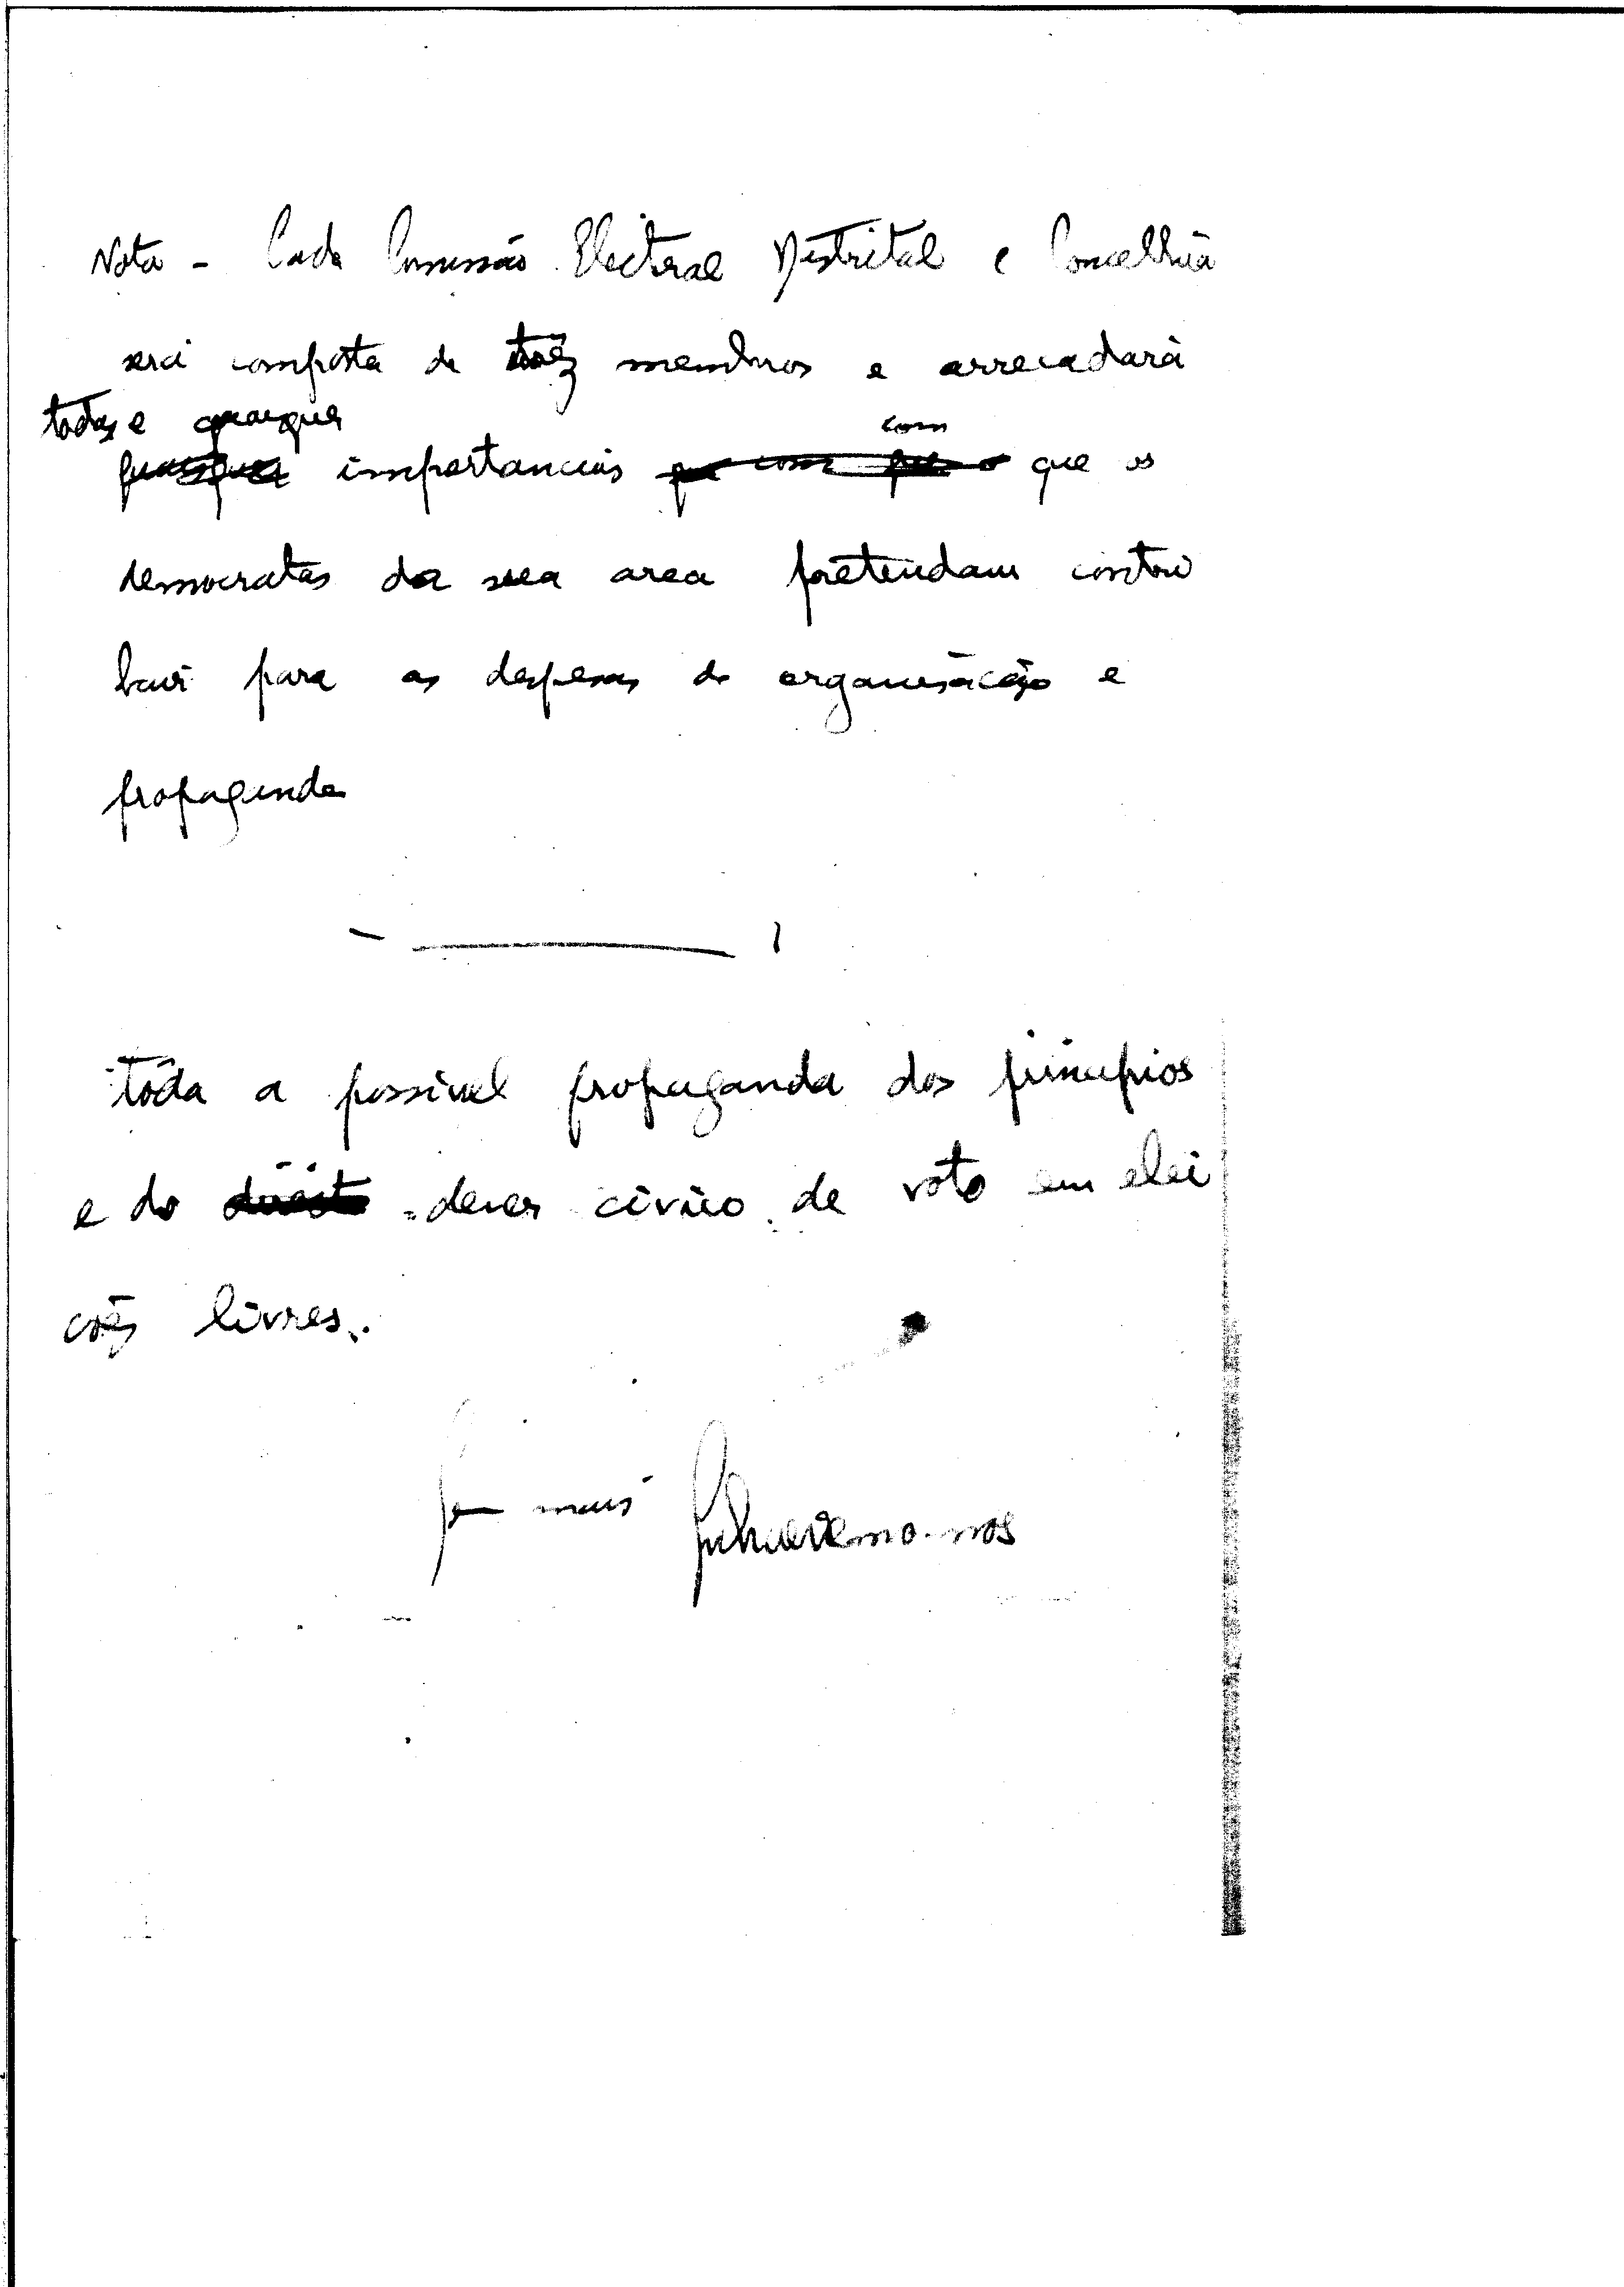 Nota - Cada Comissão Electoral Distrital e Concelhia
será composta de três membros e arrecadará
todas e quaisquer com
quaisquer importancias que os
democratas da sua area pretendam contri
buir para as despesas de organisação e
propaganda
tôda a possivel propaganda dos principios
e do direito dever civico de voto em elei
ções livres.
Sem mais Subscrevemo-nos